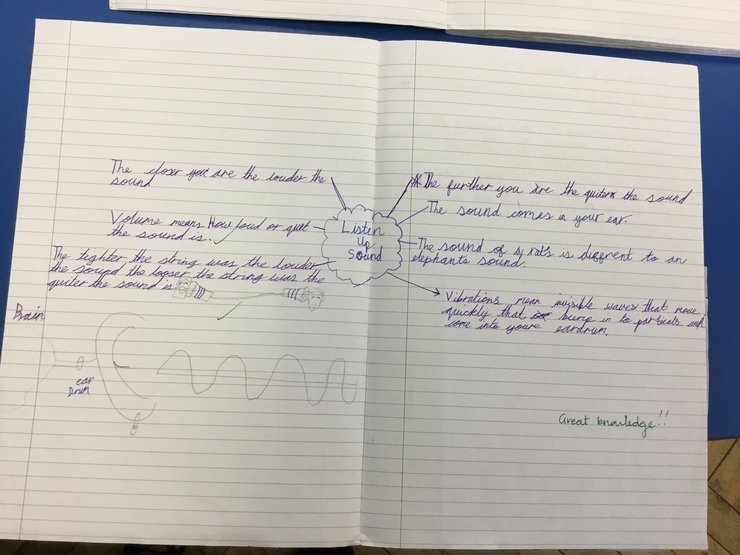 The closer you are the louder the
sound
Volume means How loud or quiet
the sound is.
The tighter the string was the louder
the sound the looser the string was the
quiter the sound is
Brain
ear
Drum
Listen
Up
Sound
The further you are the quiter the sound
The sound comes in your ear.
The sound of rats is diffrent to an
elephants sound.
Vibrations mean invisible waves that move
quickly that bump in to particals and
come into youre eardrum.
Great knowledge!!